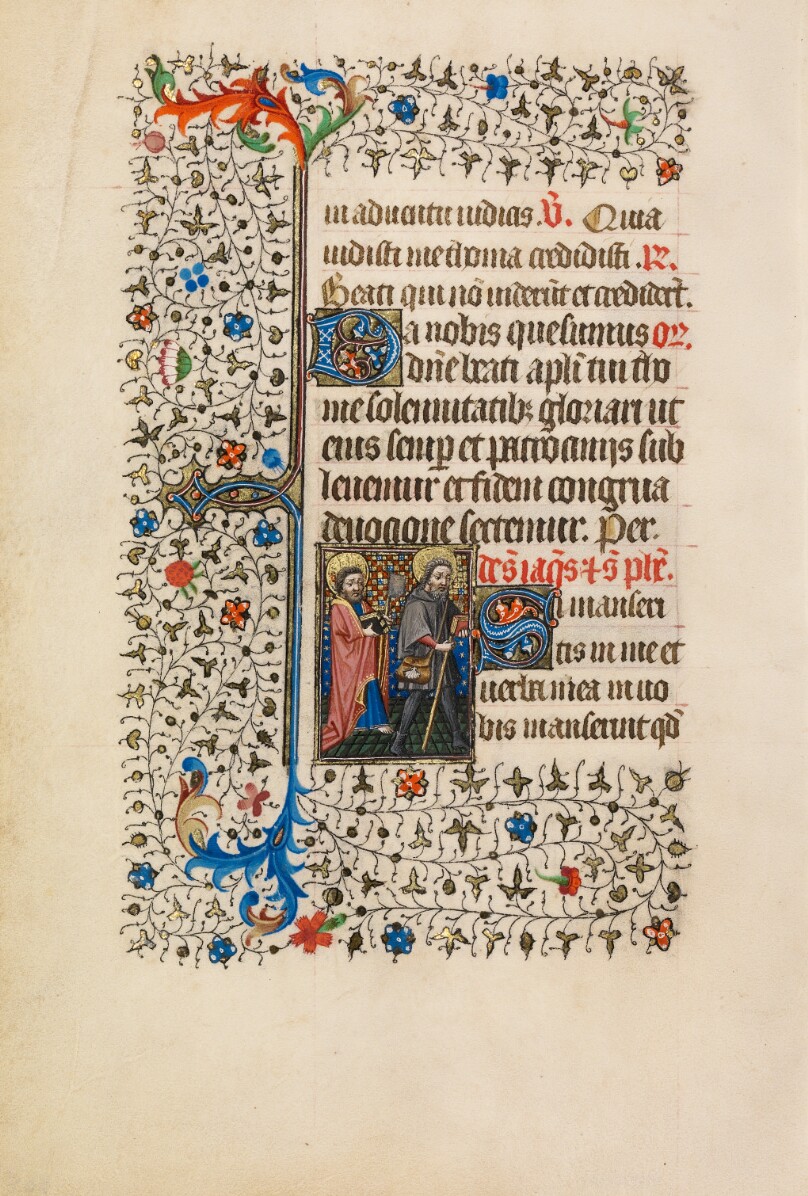 in aducitu iudias. V̄. Quia
uidisti me thoma credidisti. R.
Beati qui nō uiderūt et credidert̄.
Da nobis quesumus or.
dn̄e beati apl̄i tui tho
me solennitatibꝫ gloriari ut
eius semp̱ et patrociniis sub
leuemur et fidem congrua
deuocione sectemur. Per.
de s̄ iaq̄s ⁊ s̄ ph̄e.
Si manseri
tis in me et
uerba mea in uo
bis manseruit qd̄